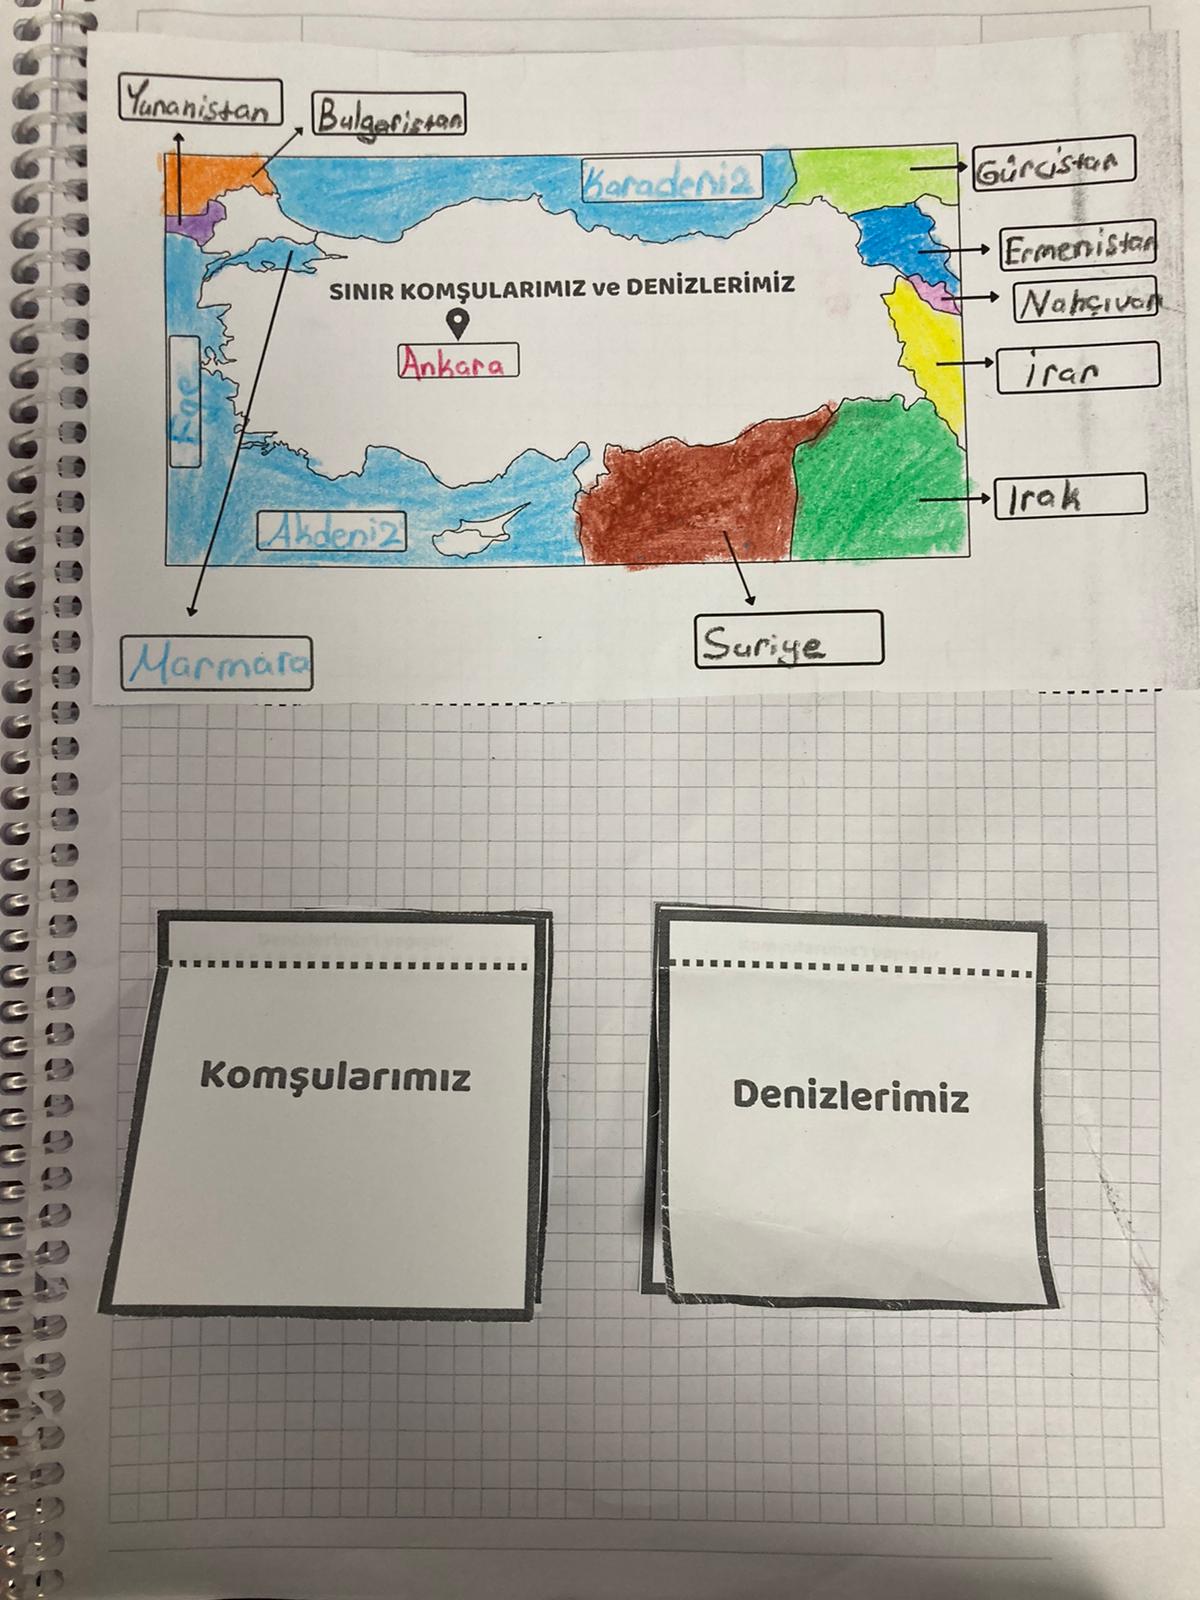 Yunanistan
Bulgaristan
Karadeniz
Gürcistan
Ermenistan
SINIR KOMŞULARIMIZ ve DENİZLERİMİZ
Nahçıvan
Ankara
İran
Ege
Irak
Akdeniz
Suriye
Marmara
Komşularımız
Denizlerimiz